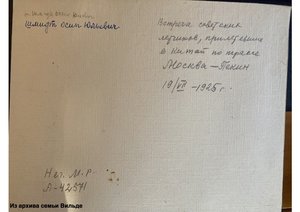 Шмидт Осип Юльевич
Встреча советских
летчиков, прилетевших
в Китай по перелету
Москва – Пекин
19/VII – 1925 г.
Нег. М. Р.
А-42571
Из архива семьи Вильде